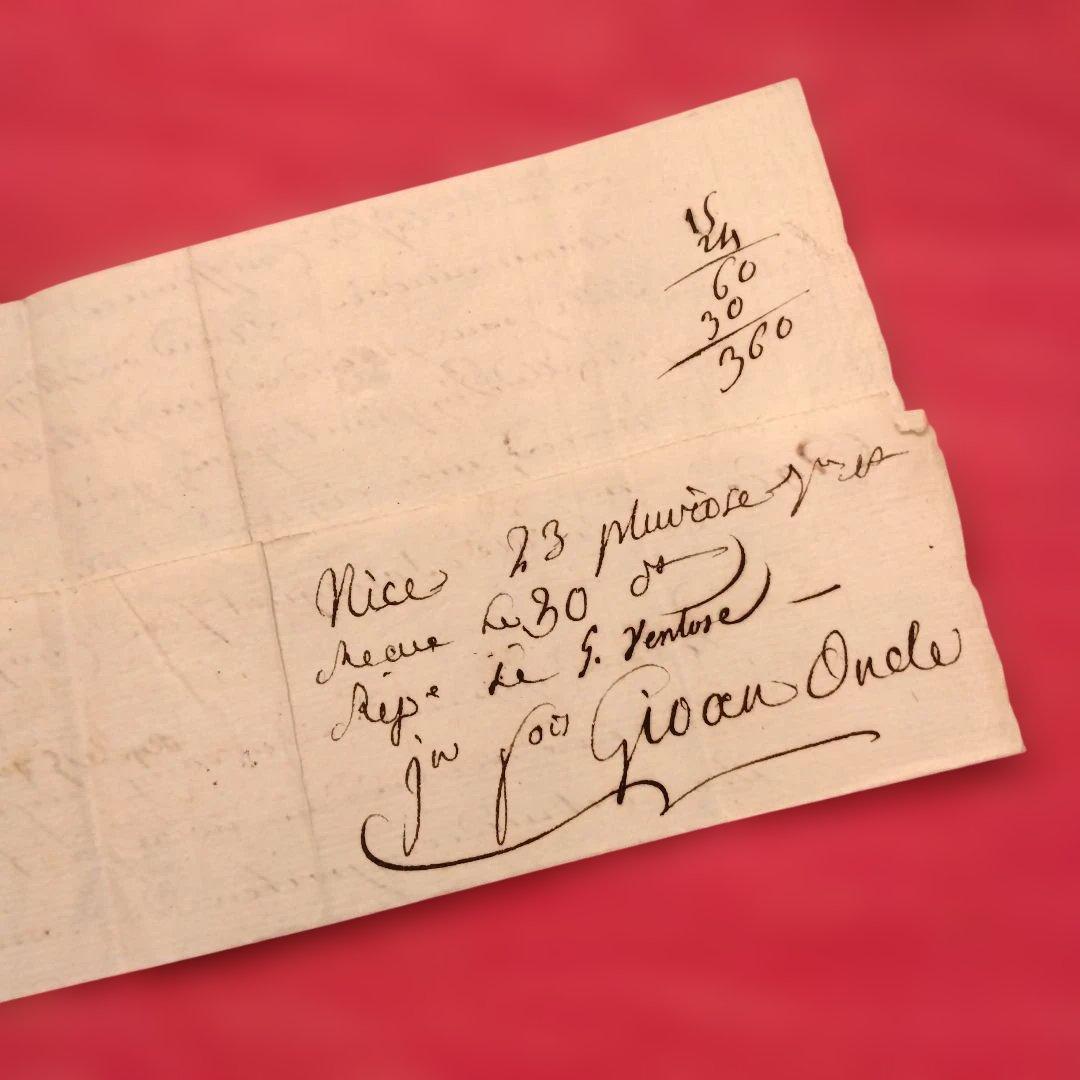 15
24
60
30
360
Nice 23 pluviose
Recue Le 30 dt
Rep.e Le 5. Ventose
Jn fois Gioan Oncle